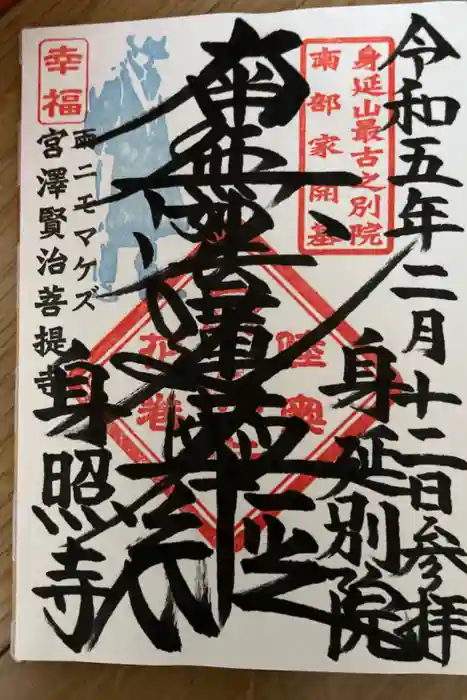 令和五年二月十二日参拝
身延山最古之別院
南部家開基
身延別院
南無妙法蓮華経
陸奥
花巻
幸福
雨ニモマケズ
宮澤賢治菩提寺
身照寺